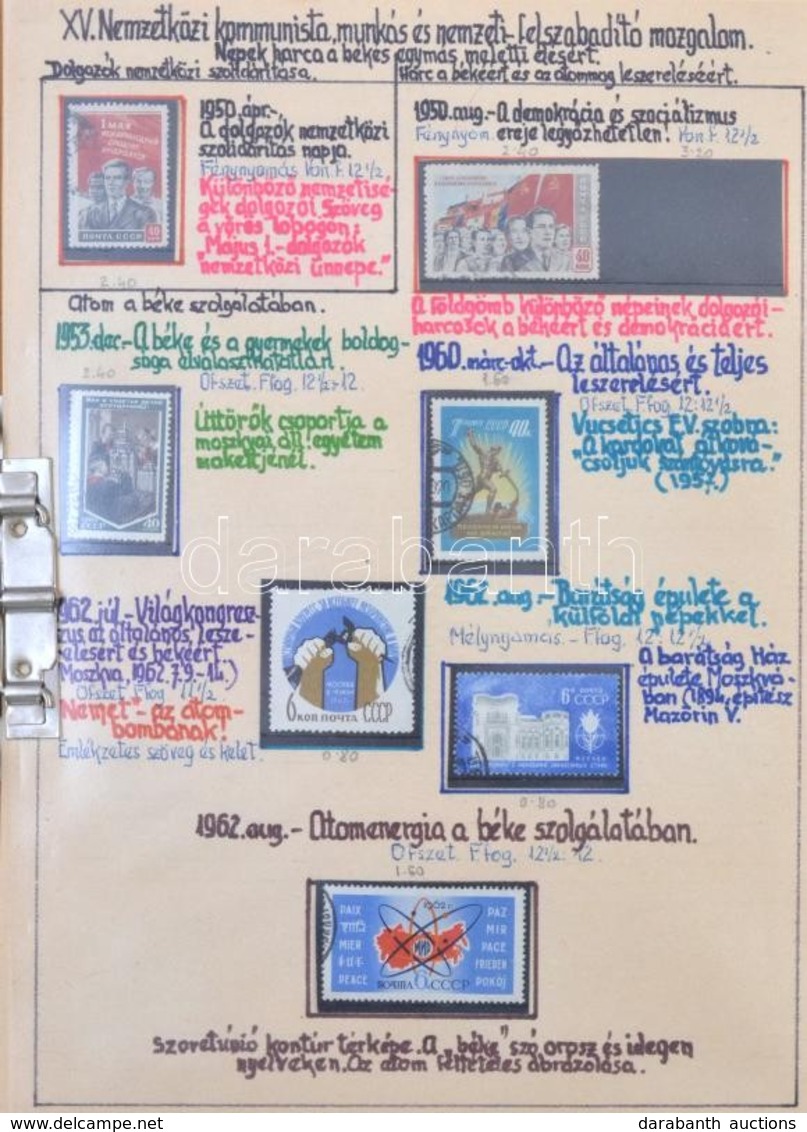 XV. Nemzetközi kommunista, munkás és nemzeti-felszabadító mozgalom.
Népek harca a békés egymás meletti élésért.
Dolgozók nemzetközi szolidaritása.
Harc a békéért és az atommag leszereléséért.
1950. ápr.-
A dolgozók nemzetközi
szolidaritás napja.
Fénynyomás Von.F. 12 1/2
Különböző nemzetisé-
gek dolgozói Szöveg
a vörös lobogón:
"Május 1.- dolgozók
nemzetközi ünnepe."
1 МАЯ
40
ПОЧТА СССР
2.40
1950. aug.- A demokrácia és szocializmus
Fénynyom. ereje legyőzhetetlen! Von.F. 12 1/2
2.40 3.20
40
A Földgömb különböző népeinek dolgozói-
harcosok a békéért és demokráciáért.
Atom a béke szolgálatában.
1953. dec.- A béke és a gyermekek boldog-
sága elválaszthatatlan.
2.40
Ofszet. Ffog. 12 1/2:12.
Úttörők csoportja a
moszkvai áll. egyetem
makettjénél.
40
1960. márc-okt.- Az általános és teljes
1.60
leszerelésért.
Ofszet Ffog. 12:12 1/2
Vucsetics E.V. szobra:
"A kardokat átková-
csoljuk szántóvasra."
(1957.)
ПОЧТА СССР 40к.
darabanth
1962. júl.- Világkongresz-
szus az általános lesze-
relésért és békéért
Moszkva, 1962.7.9.-14.)
Ofszet. Ffog 11 1/2
"Nemet"- az atom-
bombának!
Emlékzetes szöveg és kelet.
МОСКВА
6 КОП ПОЧТА СССР
0.80
1962. aug.- Barátság épülete a
külföldi népekkel.
Mélynyomás.- Ffog. 12:12 1/2
A barátság Ház
épülete Moszkvá-
ban (1894, építész
Mazürin V.
6к ПОЧТА
СССР
0.80
1962. aug.- Atomenergia a béke szolgálatában.
Ofszet. Ffog. 12 1/2:12.
1.60
1962 г.
PAIX
MIER
PEACE
МИР
PAZ
MIR
PACE
FRIEDEN
POKÓJ
ПОЧТА 6к СССР
Szovetúnió kontúr térképe. A "béke" szó orosz és idegen
nyelveken. Az atom feltételes ábrázolása.
darabanth auctions